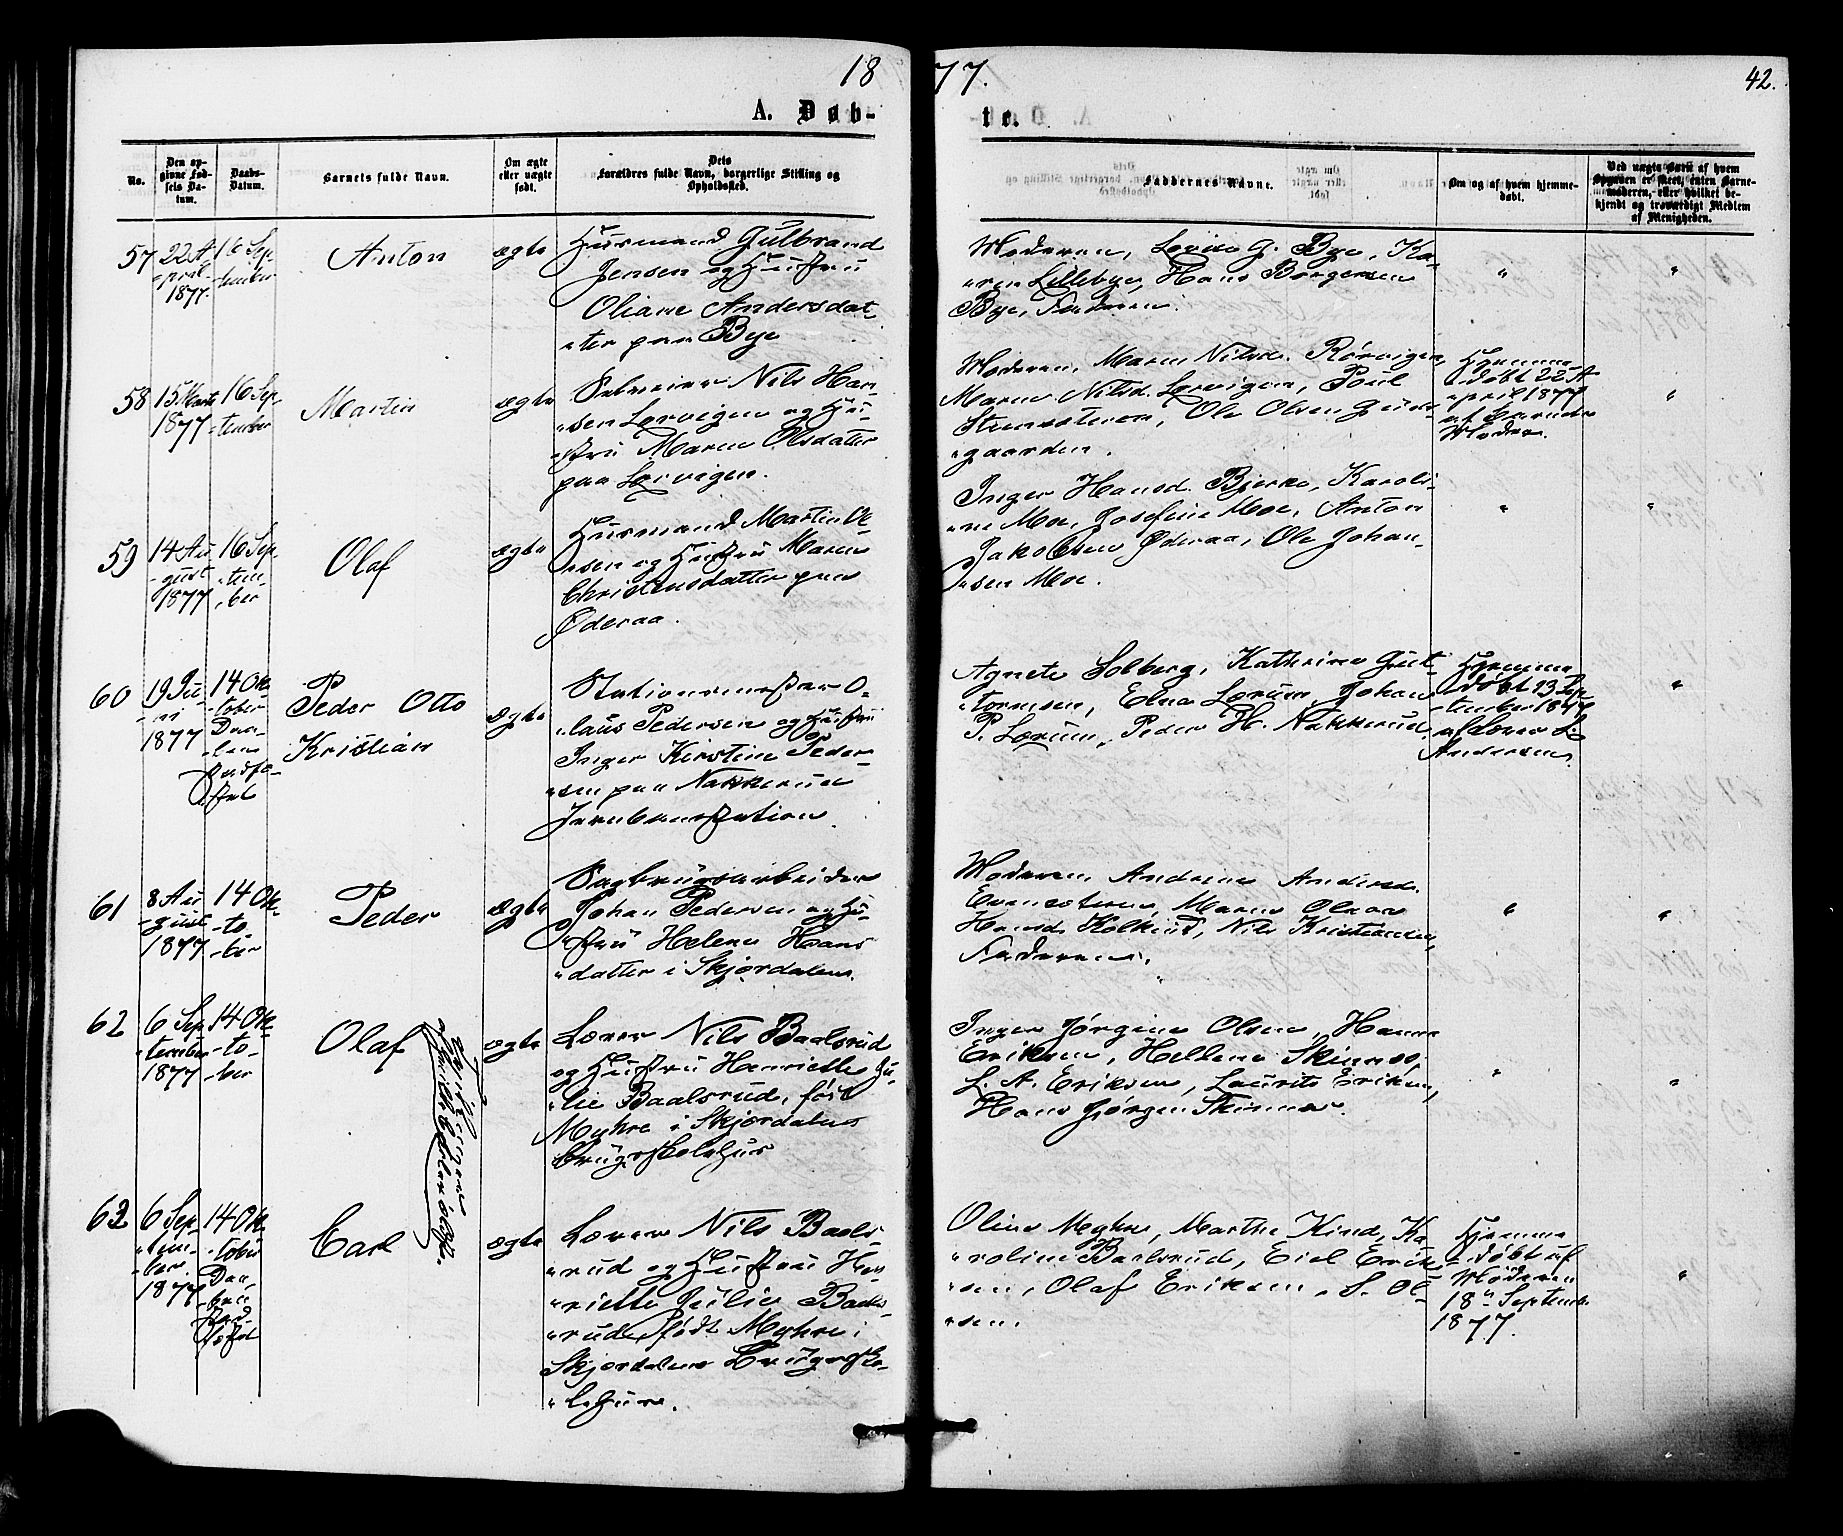 1877.
42.
A. Døbte.
No.
Den opgivne Fødsels Datum.
Daabs-Datum.
Barnets fulde Navn.
Om ægte eller uægte født.
Dets Forældres fulde Navn, borgerlige Stilling og Opholdssted.
Faddernes Navne.
Om og af hvem hjemmedøbt.
Ved uægte Barn af hvem Opgaven er skeet, enten Barnemoderen, eller hvilket bekjendt og troværdigt Medlem af Menigheden.
57
22 A-
pril
1877.
16 Sep-
tember
Anton
ægte
Husmand Gulbrand
Jensen og Hustru
Oliane Andersdat-
ter paa Bye
Moderen, Lovise G. Bye, Ka-
ren Lillebye, Hans Borgersen
Bye, Faderen.
58
15 Marts
1877
16 Sep-
tember
Martin
ægte
Selveier Nils Han-
sen Lervigen og Hu-
stru Maren Olsdatter
paa Lervigen.
Moderen, Maren Nilsd. Rørvigen,
Maren Nilsd. Lervigen, Poul
Steensteren, Ole Olsen
gaarden.
Hjemme-
døbt 22 A-
pril 1877
af Barnets
Moder.
59
14 Au-
gust
1877
16 Sep-
tem-
ber
Olaf
ægte
Husmand Martin Ol-
sen og Hustru Maren
Christensdatter paa
Øderaa.
Inger Hansd. Bjerke, Karoli-
ne Moe, Josefine Moe, Anton
Jakobsen Øderaa, Ole Johan-
sen Moe.
60
19 Ju-
ni
1877
14 Ok-
tober
Daa-
ben
stadfæ-
stet
Peder Otto
Kristian
ægte
Stationsmester O-
laus Pedersen og Hustru
Inger Kirstine Peder-
sen paa Nakkerud
Jernbanestation
Agnete Solberg, Kathrine Gut-
tormsen, Edna Lærum, Johan
P. Lærum, Peder H. Nakkerud
Hjemme
døbt 23 Sep-
tember 1877
af Lærer L.
Andersen.
61
8 Au-
gust
1877
14 Ok-
to-
ber
Peder
ægte
Sagbrugsarbeider
Johan Pedersen og Hu-
stru Helene Hans-
datter i Skjørdalen.
Moderen, Andrine Andersd.
Evensteren, Maren Olava
Hansd. Kolkind, Nils Kristiansen,
Faderen.
62
6 Sep-
tember
1877
14 Ok-
to-
ber
Olaf
ægte
Lærer Nils Baalsrud
og Hustru Henriette Ju-
lie Baalsrud, født
Myhre i Skjørdalens
brugsskolehus
Inger Jørgine Olsen, Hanna
Eriksen, Hellene Skinnes,
L. A. Eriksen, Laurits Eriksen,
Hans Jørgen Skinnes.
63
6 Sep-
tem-
ber
1877
14 Ok-
tober
Daa-
ben
stad-
fæstet
Carl
ægte
Lærer Nils Baals-
rud og Hustru Hen-
riette Julie Baals-
rud, født Myhre i
Skjørdalens Brugssko-
lehus.
Oline Myhre, Marthe Kind, Ka-
roline Baalsrud, Eiel Erik-
sen, Olaf Eriksen, S. Ol-
sen.
Hjemme
døbt af
Moderen
18 September
1877.